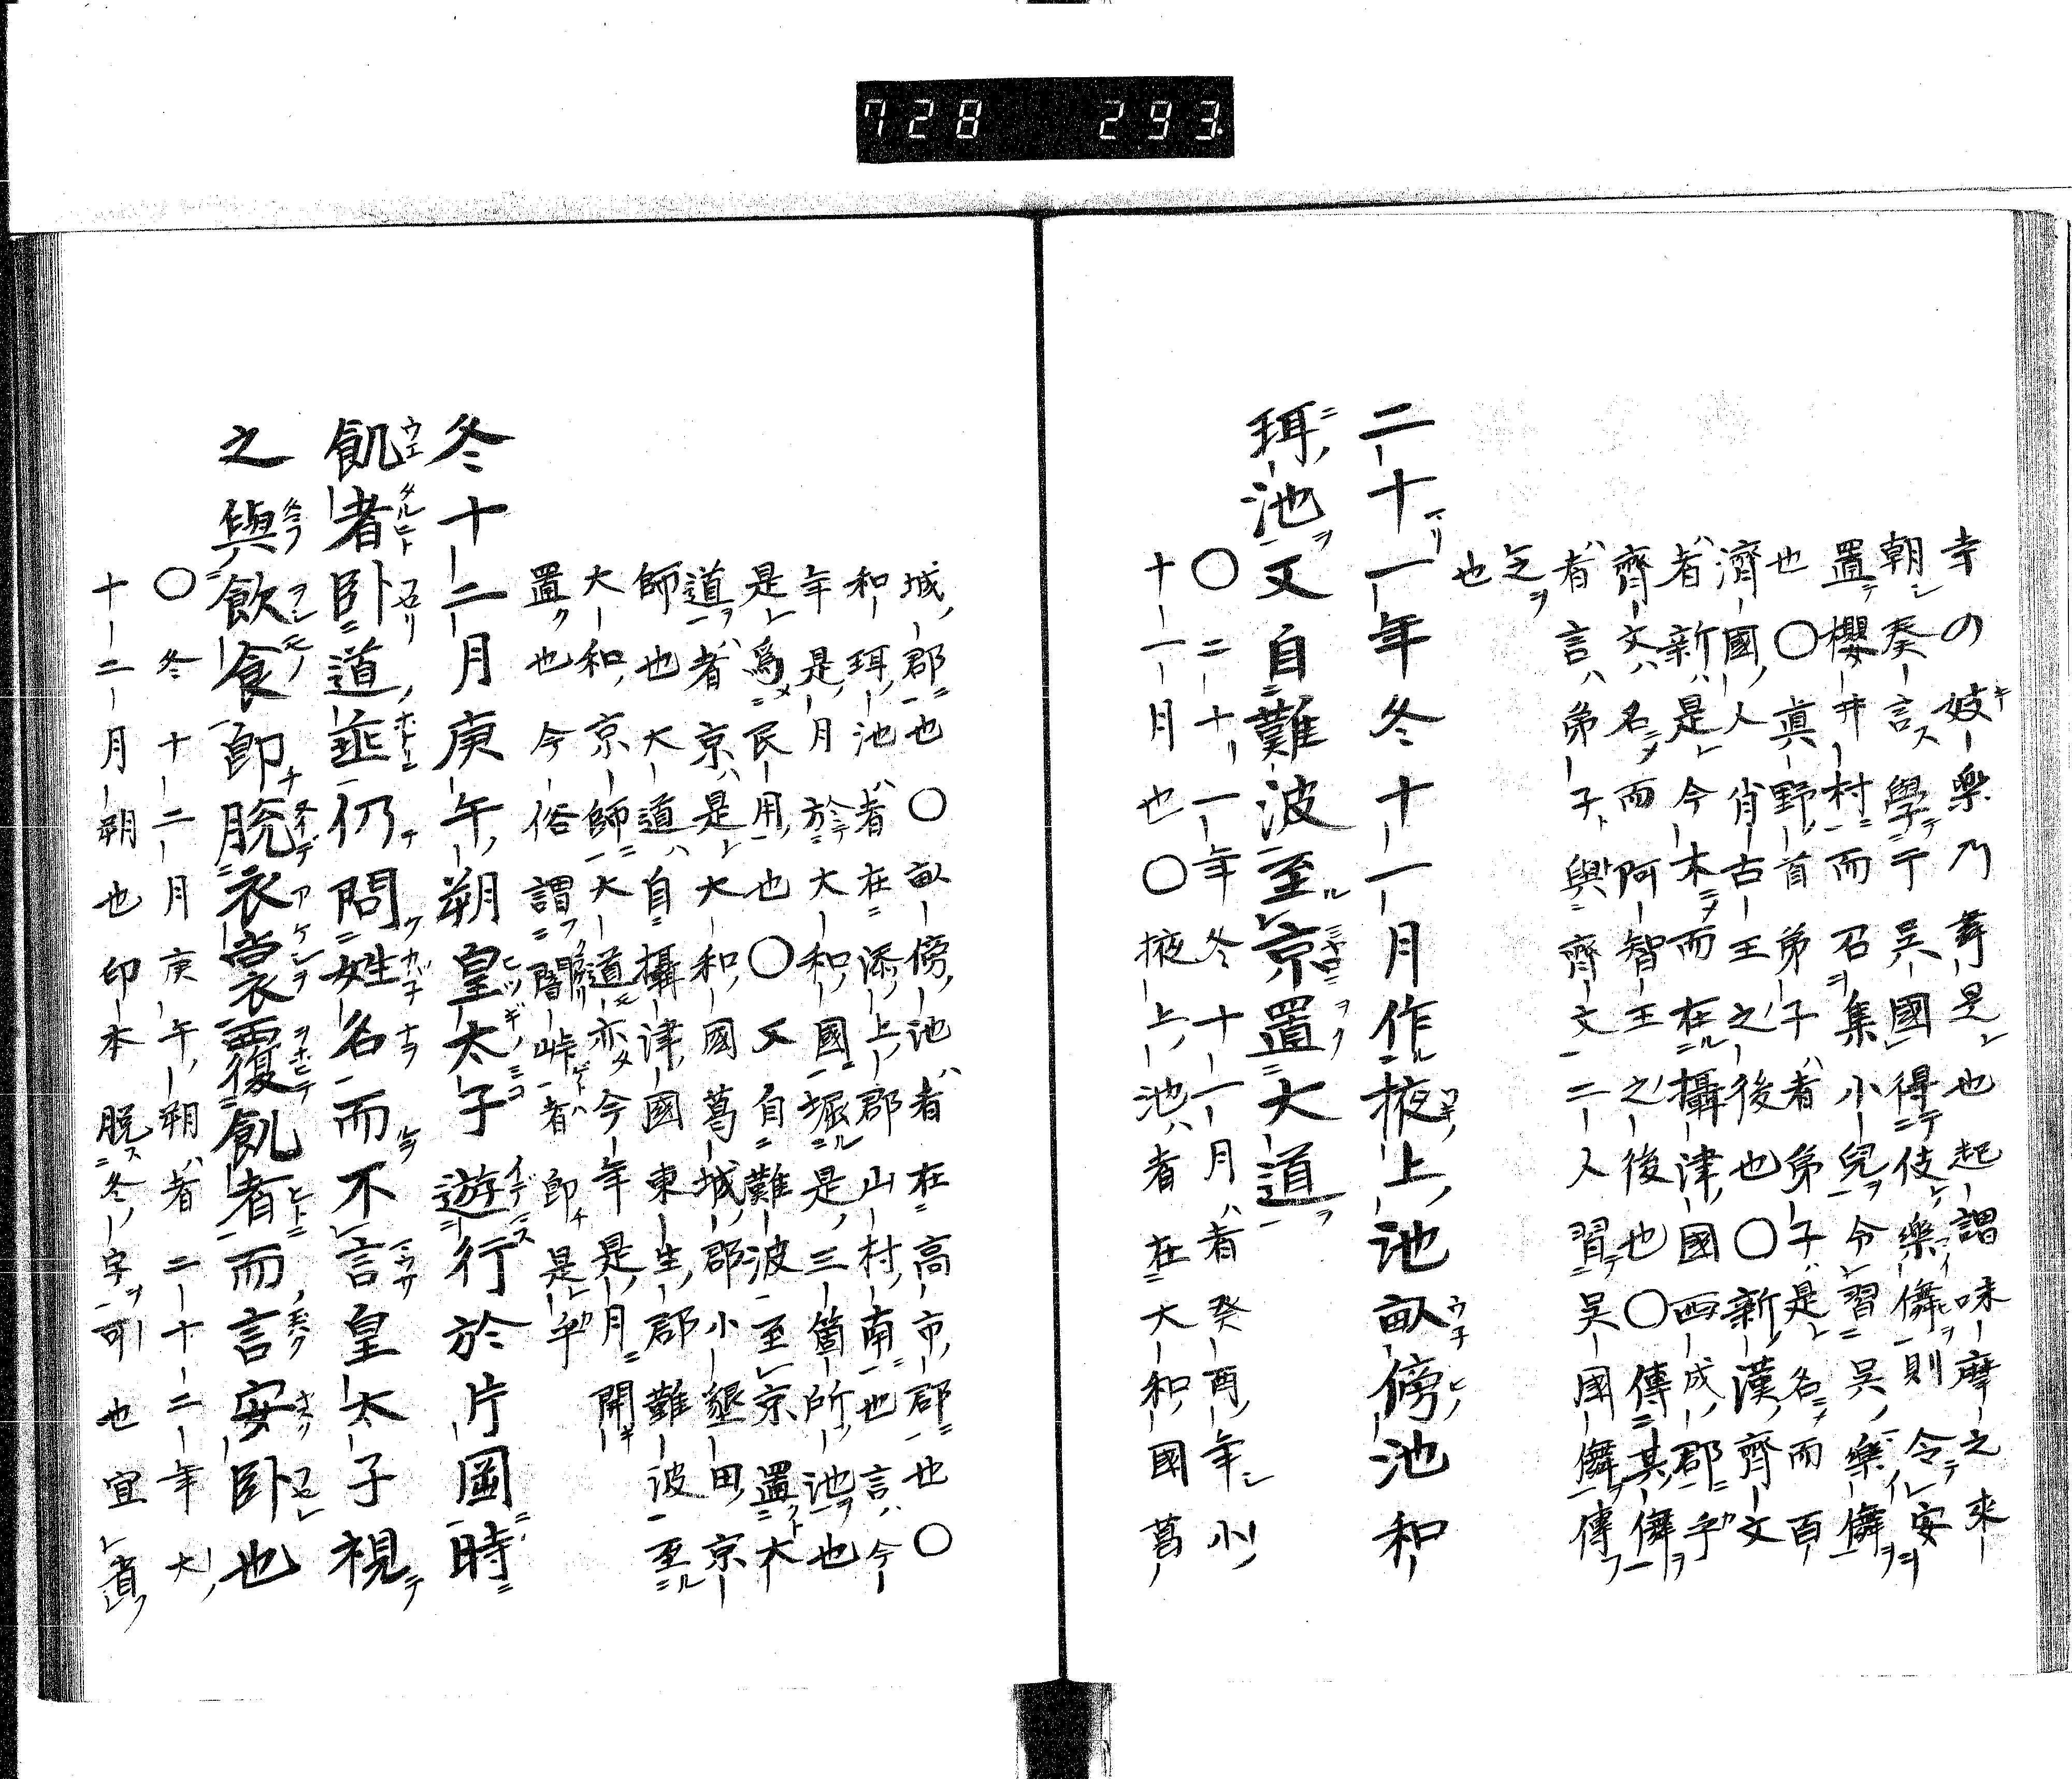 728 293
寺の妓樂乃舞是也起謂味摩之來
朝奏言學于吳國得伎樂儛則令安
置櫻井村而召集小兒令習吳樂儛
也〇眞野首弟子者弟子是名而百
濟國人肖古王之後也〇新漢齊文
者新是今木而在攝津國西成郡乎
齊文名而阿智王之後也〇傳其儛
者言弟子與齊文二人習吳國儛傳
之
也
二十一年冬十一月作掖上池畝傍池和
珥池又自難波至京置大道
〇二十一年冬十一月者癸酉年小
十一月也〇掖上池者在大和國葛
城郡也〇畝傍池者在高市郡也〇
和珥池者在添上郡山村南也言今
年是月於大和國堀是三箇所池也
是爲民用也〇又自難波至京置大
道者京是大和國葛城郡小墾田京
師也大道自攝津國東生郡難波至
大和京師大道亦今年是月開
置也今俗謂闇峠者卽是乎
冬十二月庚午朔皇太子遊行於片岡時
飢者臥道垂仍問姓名而不言皇太子視
之與飮食卽脫衣裳覆飢者而言安臥也
〇冬十二月庚午朔者二十二年大
十二月朔也印本脫冬字可也宜直